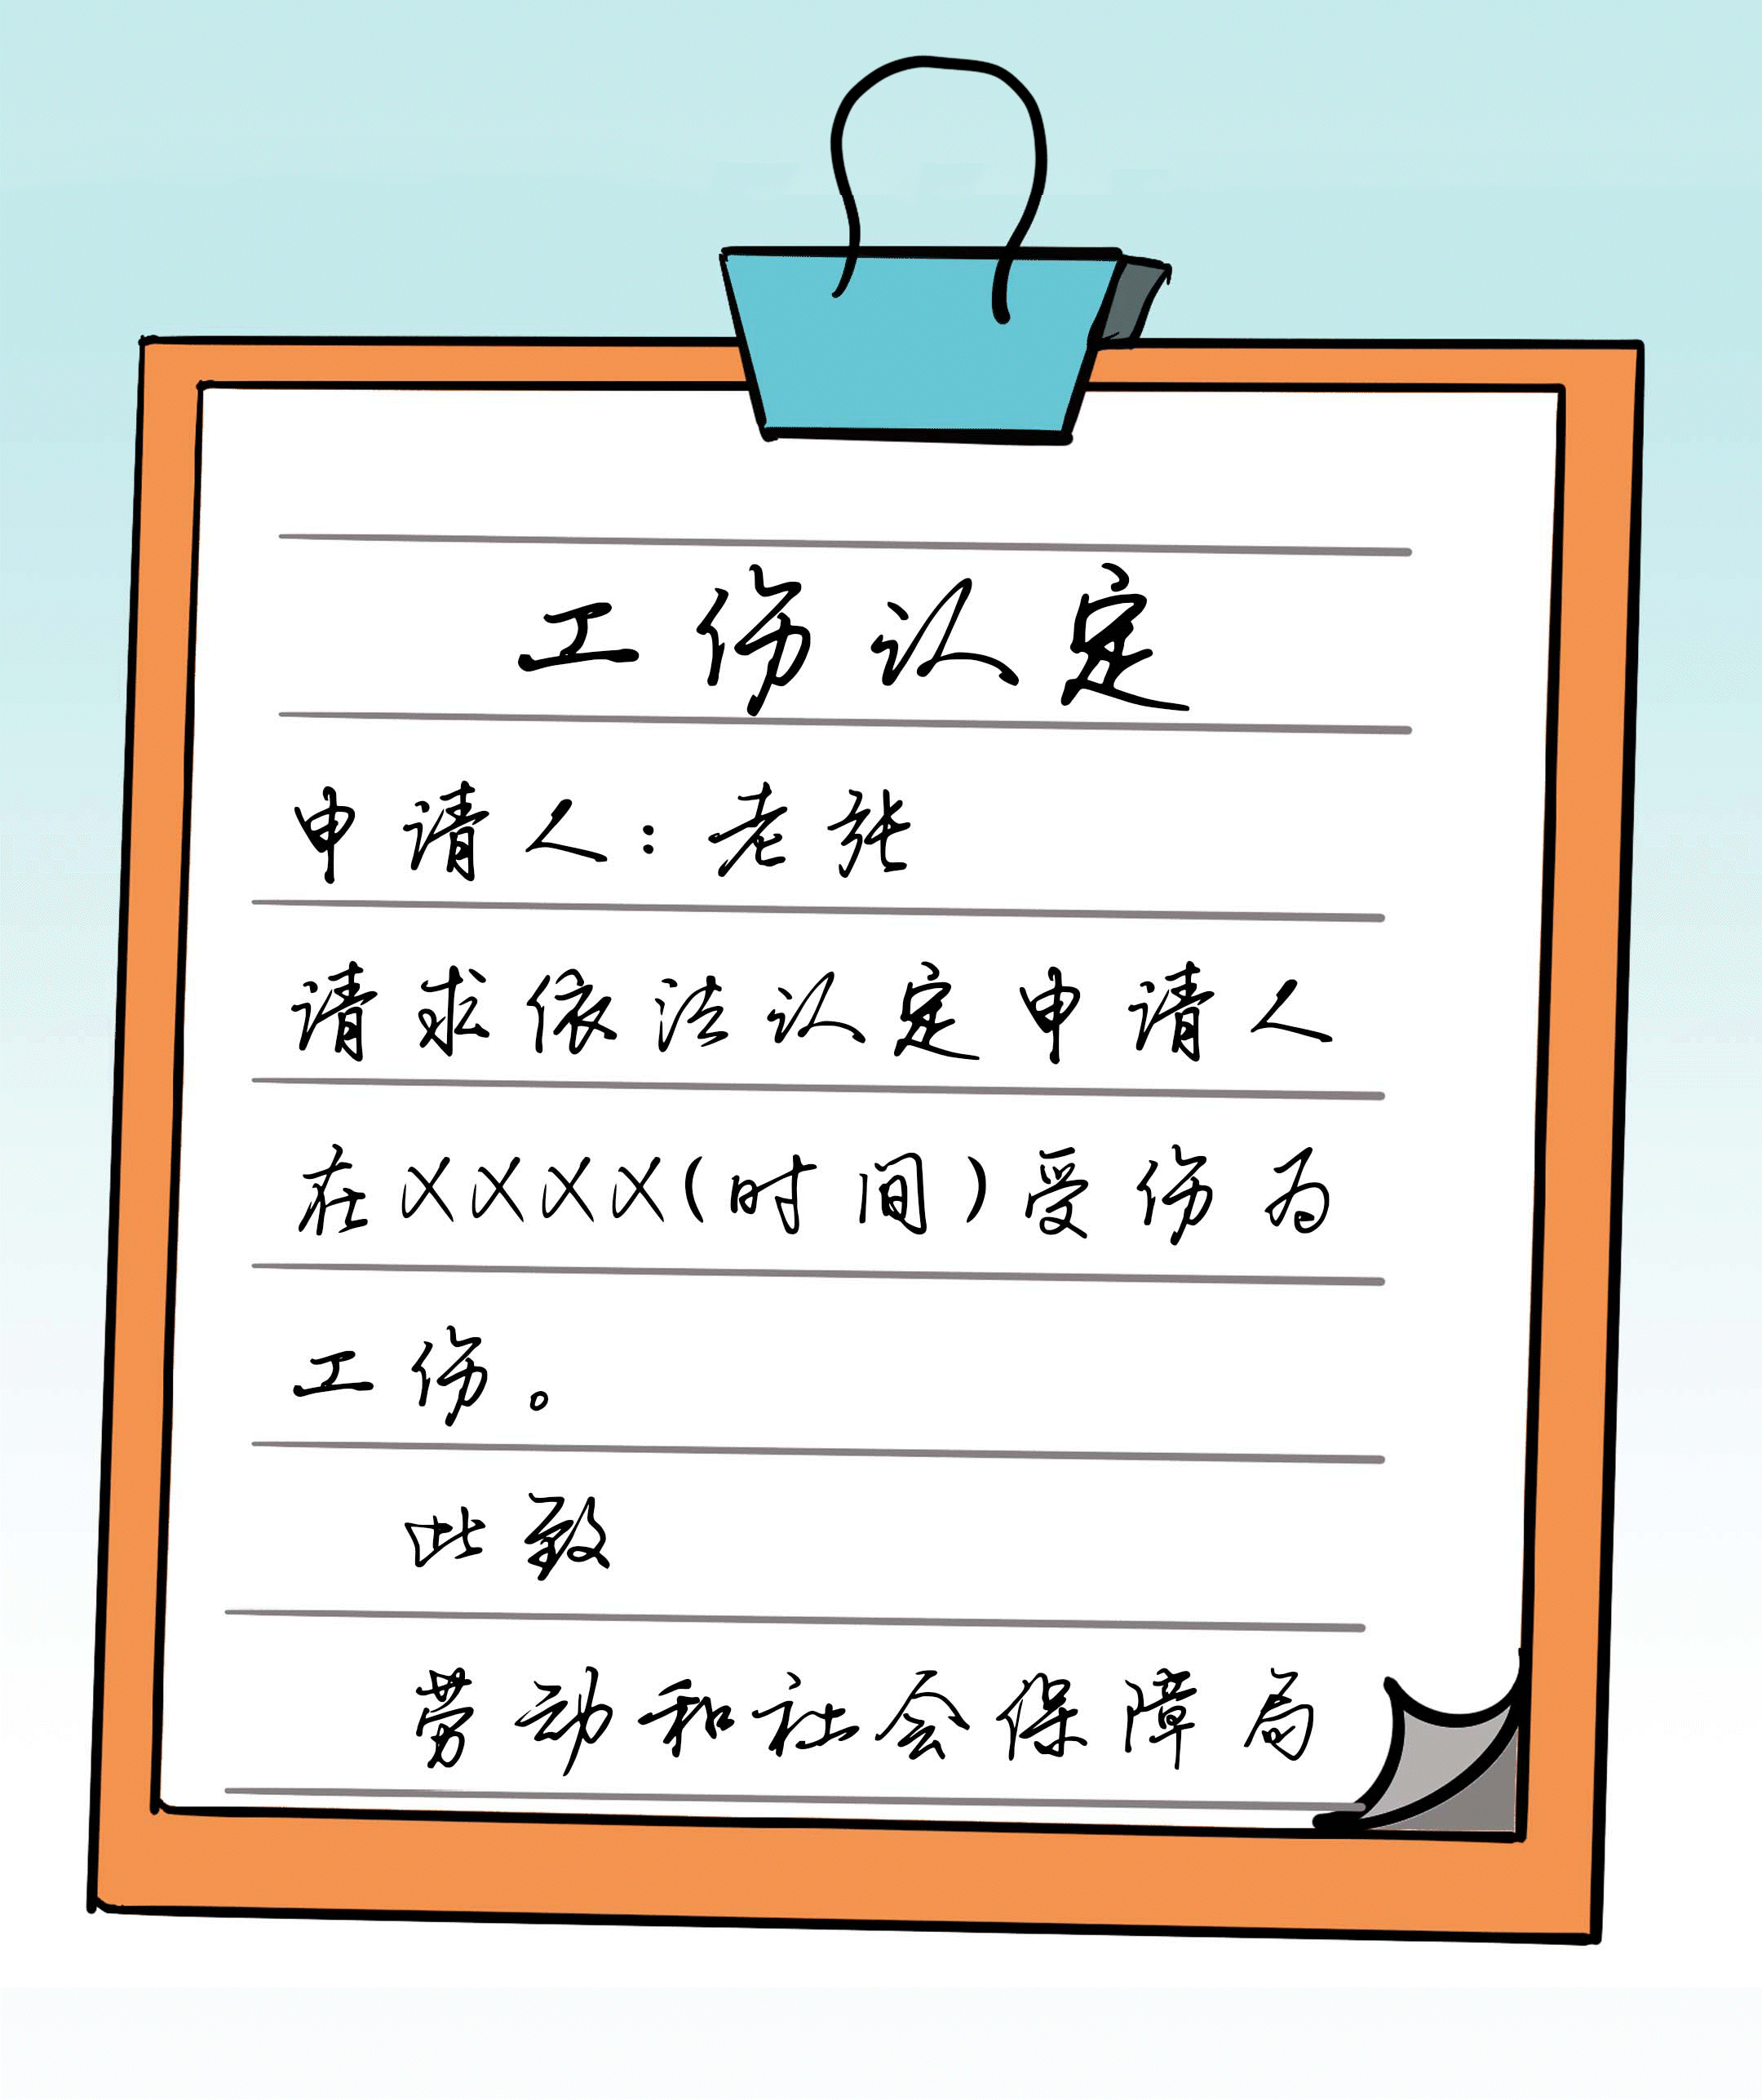 工伤认定
申请人：老张
请求依法认定申请人
在XXXX(时间)受伤为
工伤。
此致
劳动和社会保障局